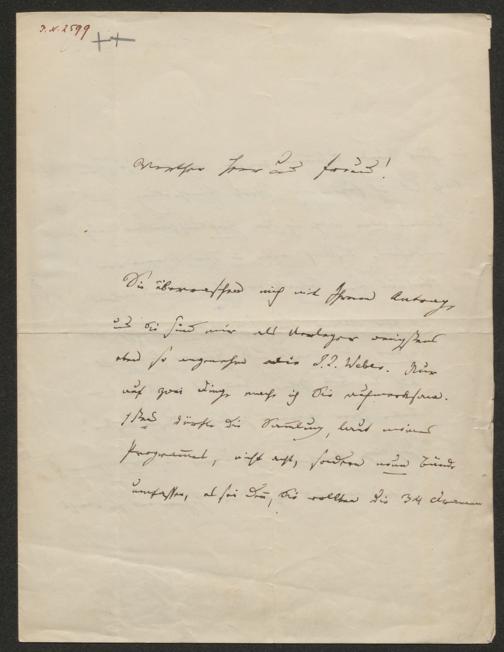 I. N. 2599
Werther Herr und Freund!
Sie überraschen mich mit Ihrem Antrag,
und Sie sind mir als Verleger wenigstens
eben so angenehm wie J. J. Weber. Nur
auf zwei Dinge mache ich Sie aufmerksam.
1stens dürfte die Sammlung, laut meines
Programmes, nicht acht, sondern neun Bände
umfassen, es sei denn, Sie wollten die 3/4